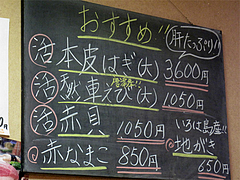 おすすめ!!
肝たっぷり!!
活 本皮はぎ(大) 3600円
活 車えび(大) 1050円
活 赤貝 1050円
赤なまこ 850円
いろは島産!!
地がき
650円